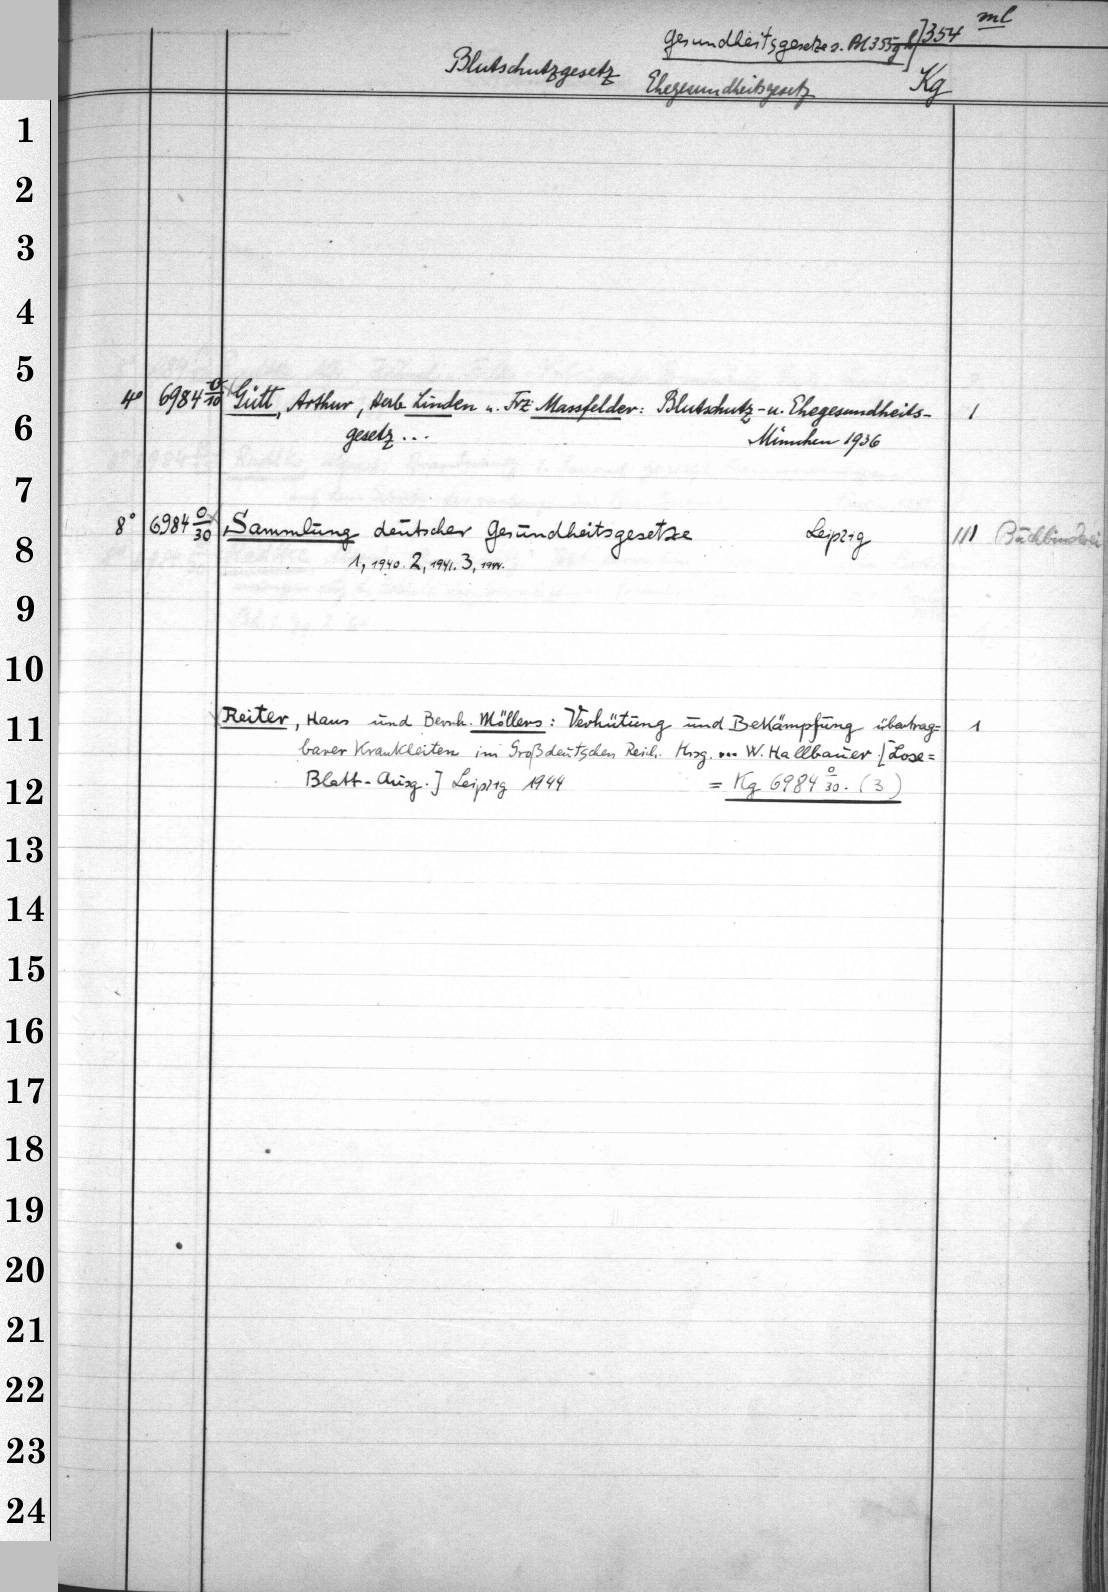 ml
Gesundheitsgesetze s. 354
Blutschutzgesetz
Ehegesundheitsgesetz Kg
1
2
3
4
5
4° 6984 0/10 Gütt, Arthur, Herb. Linden u. Frz. Massfelder: Blutschutz- u. Ehegesundheits- 1
6
gesetz ... München 1936
7
8° 6984 0/30 Sammlung deutscher Gesundheitsgesetze Leipzig 111 Buchbinderei
8
1, 1940. 2, 1941. 3, 1944.
9
10
11
Reiter, Hans und Bernh. Möllers: Verhütung und Bekämpfung übertrag= 1
barer Krankheiten im Großdeutschen Reich. Hrsg. ... W. Hallbauer. [Lose=
12
Blatt-Ausg.] Leipzig 1944 = Kg 6984 0/30. (3)
13
14
15
16
17
18
19
20
21
22
23
24